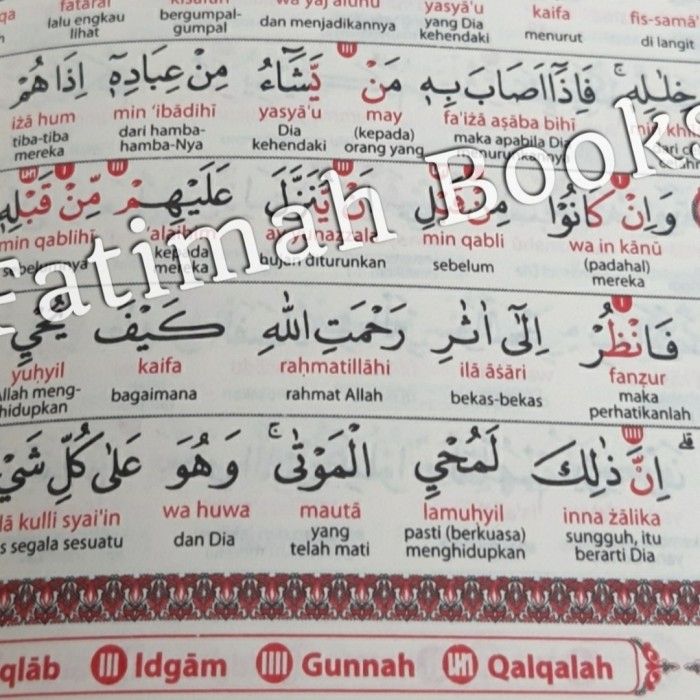 fataral
wa yaj'aluhū
yasyā'u
kaifa
fis-samā
lalu engkau lihat
bergumpal-gumpal
dan menjadikannya
yang Dia kehendaki
menurut
di langit
خِلٰلِهٖۚ فَاِذَآ اَصَابَ بِهٖ مَنْ يَّشَاۤءُ مِنْ عِبَادِهٖٓ اِذَا هُمْ
fa'iżā aṣāba bihī
may
yasyā'u
min 'ibādihī
iżā hum
maka apabila Dia
(kepada) orang yang
Dia kehendaki
dari hamba-hamba-Nya
tiba-tiba mereka
وَاِنْ كَانُوْا مِنْ قَبْلِ اَنْ يُّنَزَّلَ عَلَيْهِمْ مِّنْ قَبْلِهٖ
wa in kānū
min qabli
min qablihī
(padahal) mereka
sebelum
diturunkan
kepada mereka
فَانْظُرْ اِلٰٓى اٰثٰرِ رَحْمَتِ اللّٰهِ كَيْفَ يُحْيِ
fanẓur
ilā āṡāri
raḥmatillāhi
kaifa
yuḥyil
maka perhatikanlah
bekas-bekas
rahmat Allah
bagaimana
Allah meng-hidupkan
اِنَّ ذٰلِكَ لَمُحْيِ الْمَوْتٰىۚ وَهُوَ عَلٰى كُلِّ شَيْ
inna żālika
lamuḥyil
mautā
wa huwa
lā kulli syai'in
sungguh, itu berarti Dia
pasti (berkuasa) menghidupkan
yang telah mati
dan Dia
s segala sesuatu
qlāb
Idgām
Gunnah
Qalqalah
Fatimah Books